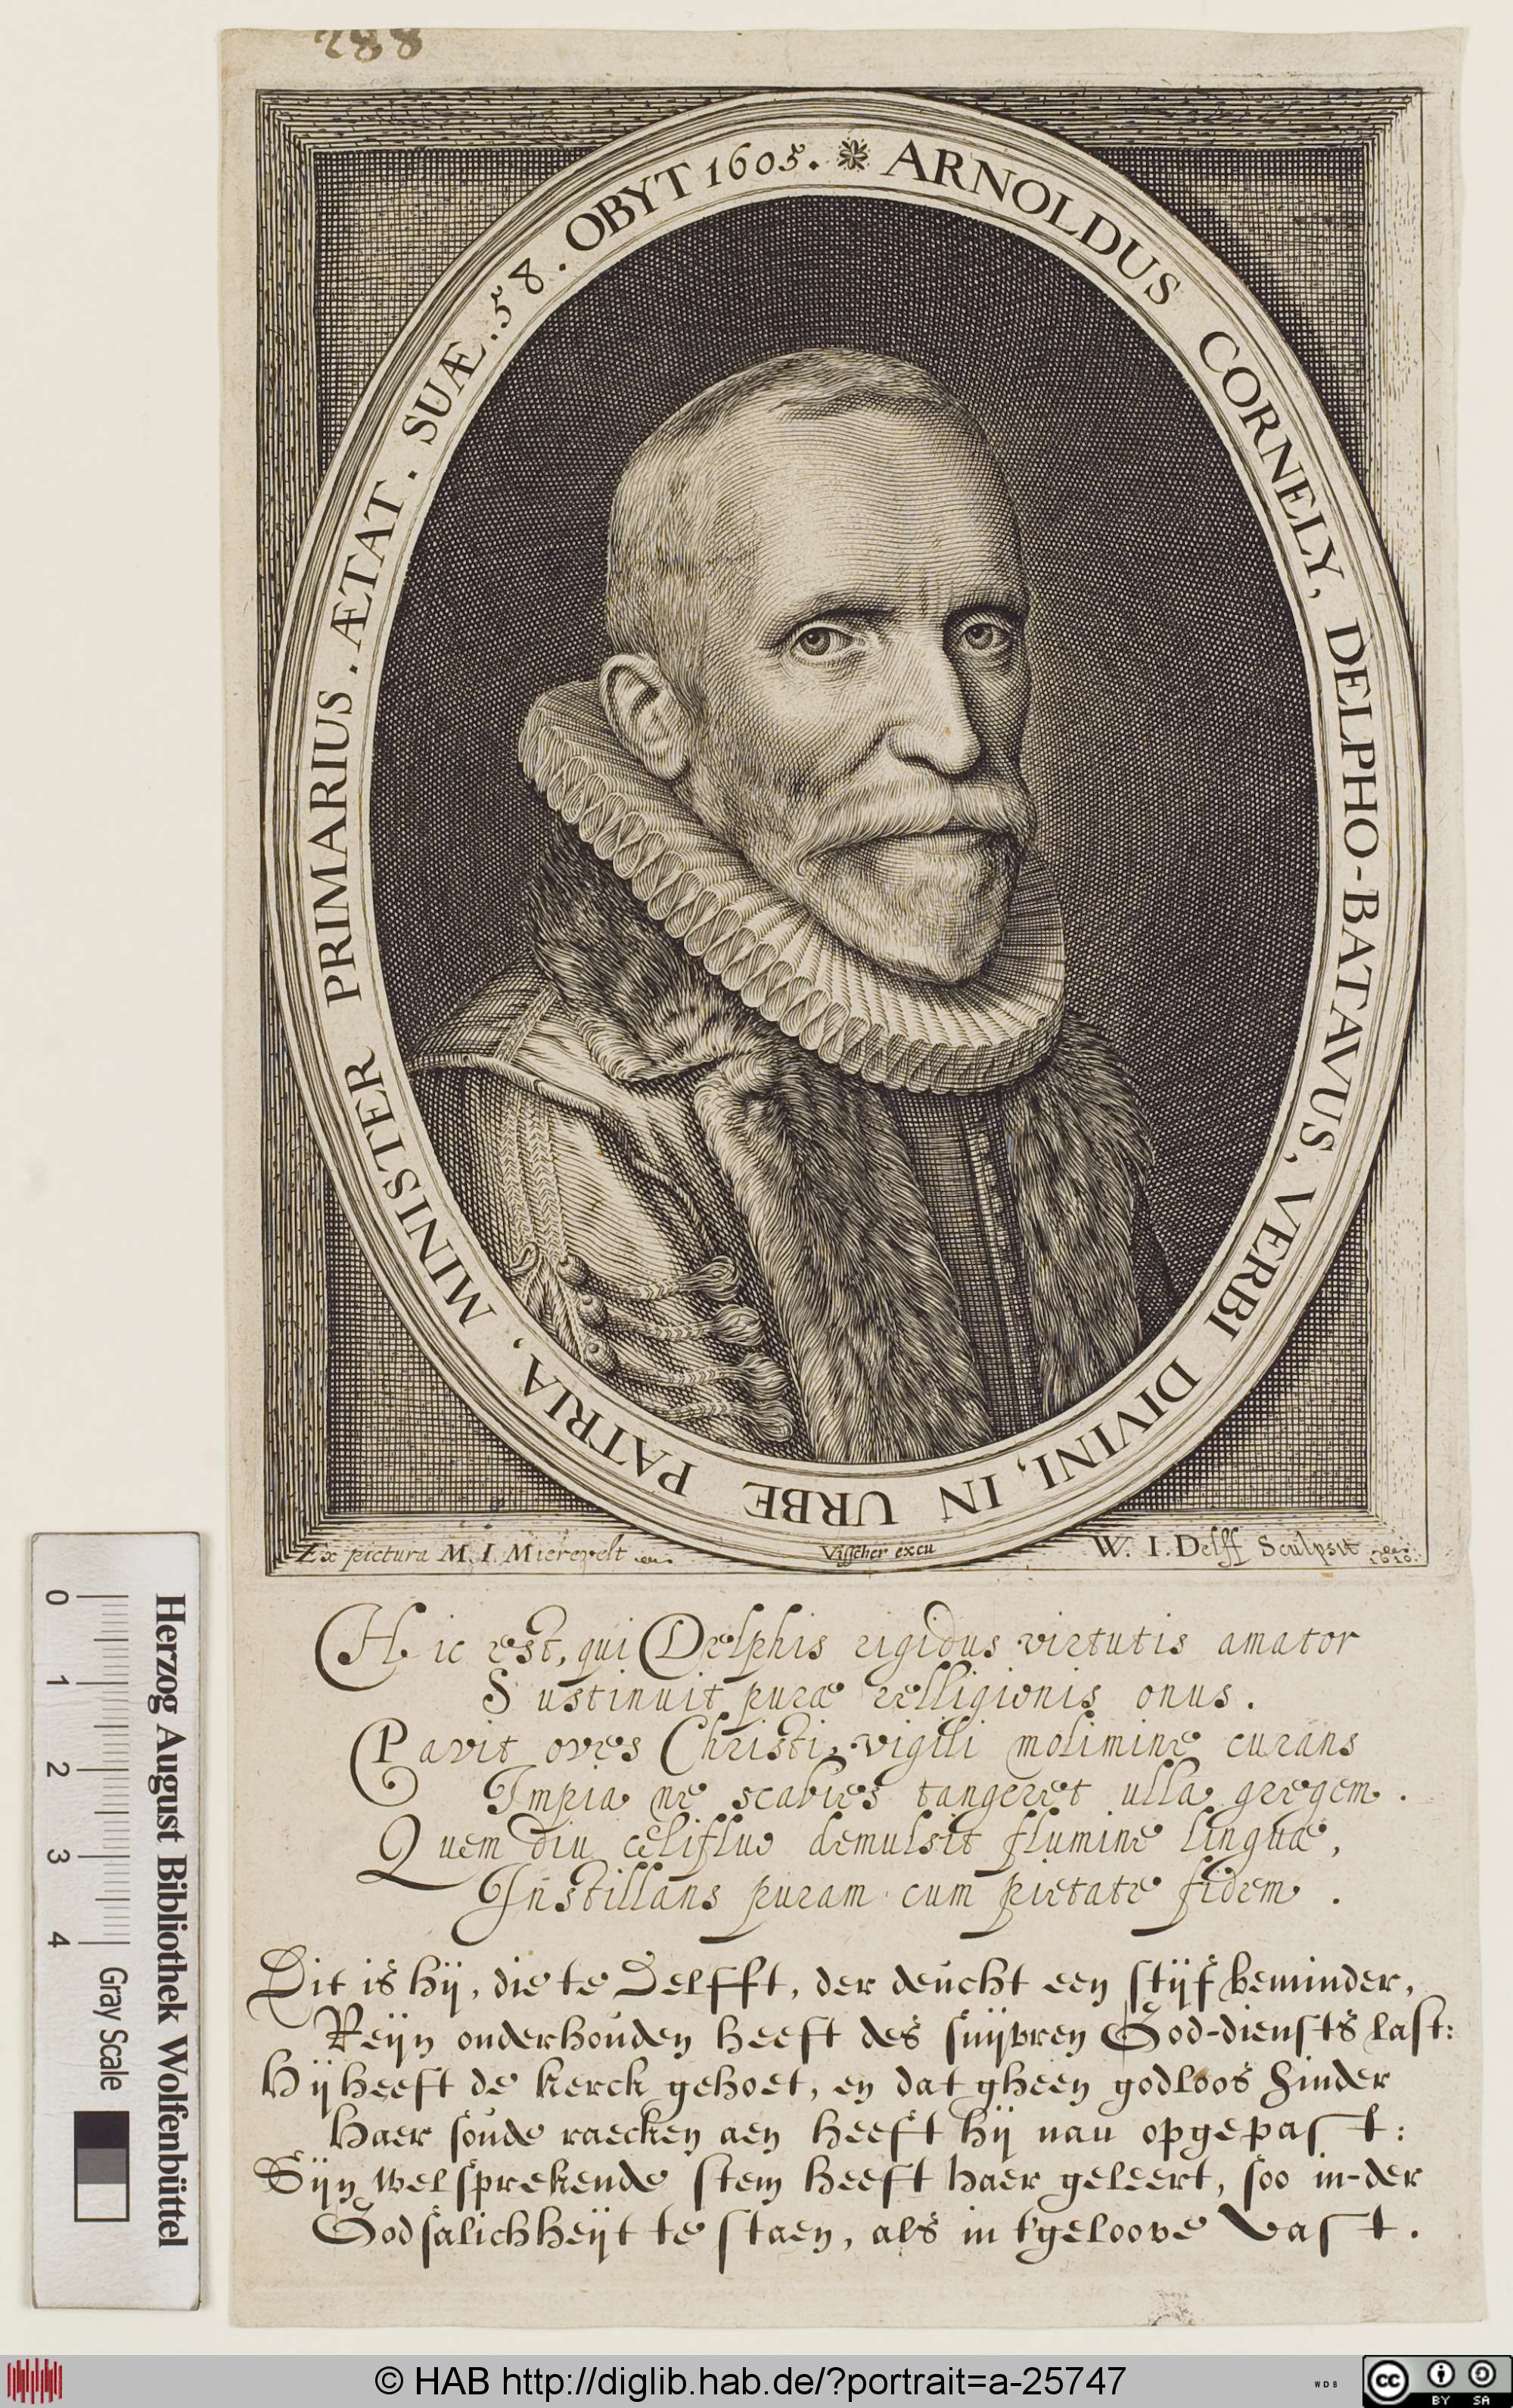 288
ARNOLDUS CORNELY, DELPHO-BATAVUS, VERBI DIVINI, IN URBE PATRIA, MINISTER PRIMARIUS. ÆTAT. SUÆ. 58. OBYT 1605.
Ex pictura M. I. Mierevelt
Visscher excu
W. I. Delff Sculpsit
Hic est, qui Delphis rigidus virtutis amator
Sustinuit puræ relligionis onus.
Pavit oves Christi, vigili molimine curans
Impia ne scabies tangeret ulla gregem.
Quem diu cælifluo demulsit flumine linguæ,
Instillans puram cum pietate fidem.
Dit is hij, die te Delfft, der deucht een stijf beminder,
Reijn onderhouden heeft des suijvren God-diensts last:
Hij heeft de kerck gehoet, en dat gheen godloos hinder
Haer soude raecken aen heeft hij nau opgepast:
Sijn welsprekende stem heeft haer geleert, soo in-der
Godsalichheijt te staen, als in t'geloove vast.
0 1 2 3 4
Gray Scale
Herzog August Bibliothek Wolfenbüttel
© HAB http://diglib.hab.de/?portrait=a-25747
WDB
cc BY SA